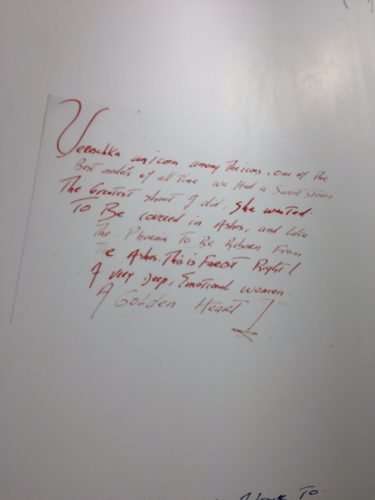 Veroschka an icon among The icons, one of the
Best models of all Time. We Had a Sweet Story
The Greatest shoot I did. She wanted
To Be covered in Ashes, and Like
The Phoenix To Be Reborn From
The Ashes. This is Right!
A very Deep, Emotional women.
A Golden Heart!
To